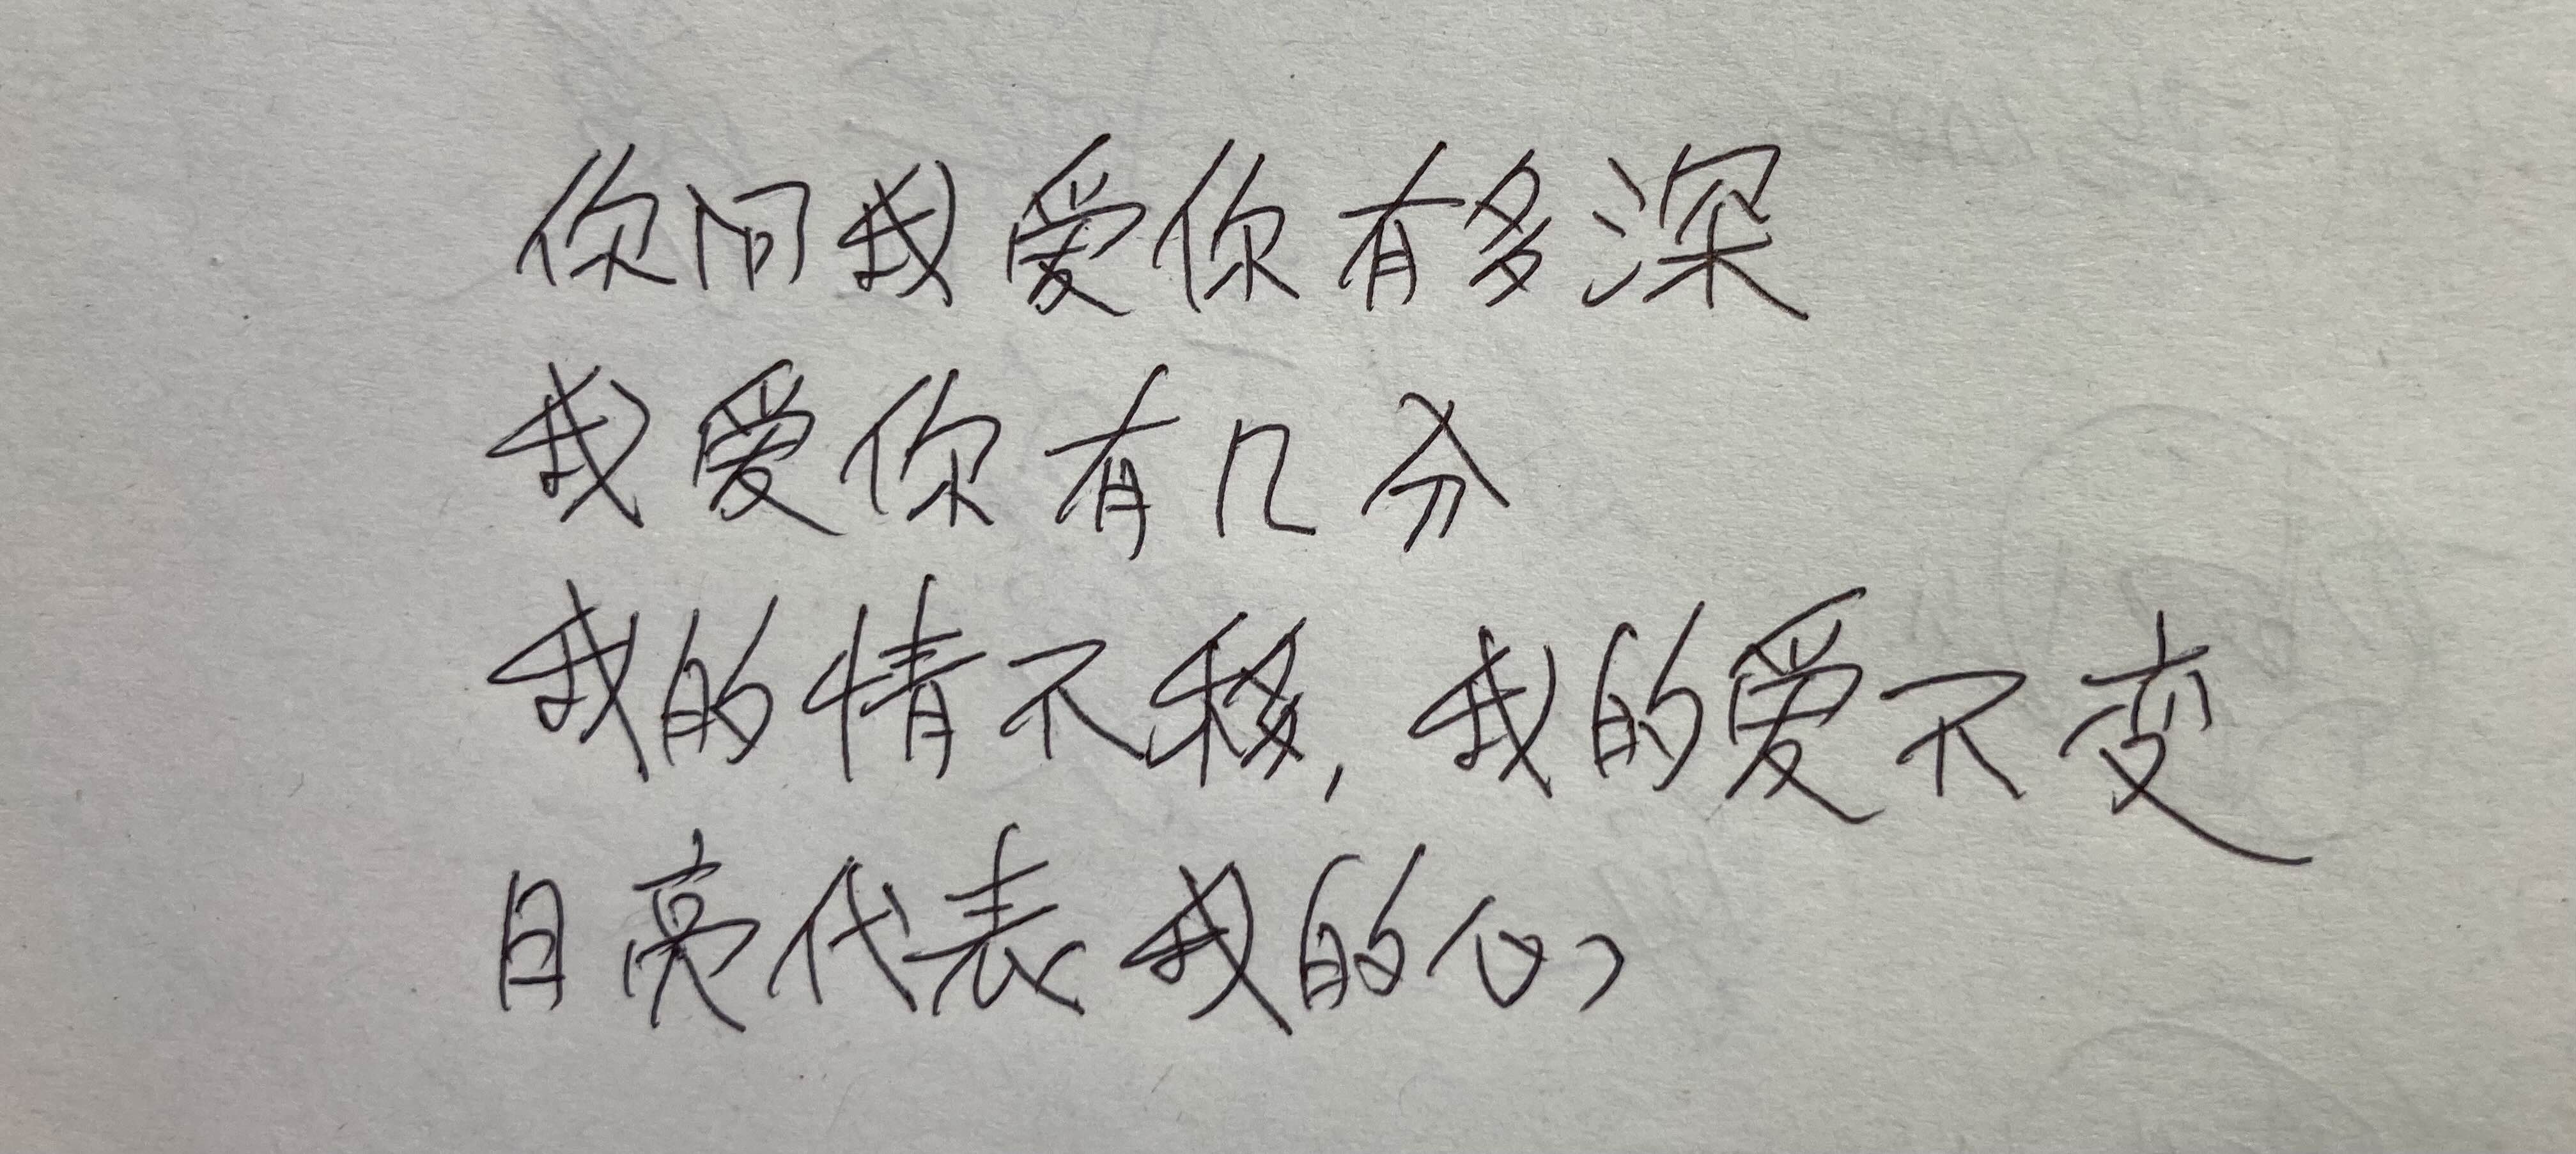 你问我爱你有多深
我爱你有几分
我的情不移,我的爱不变
月亮代表我的心